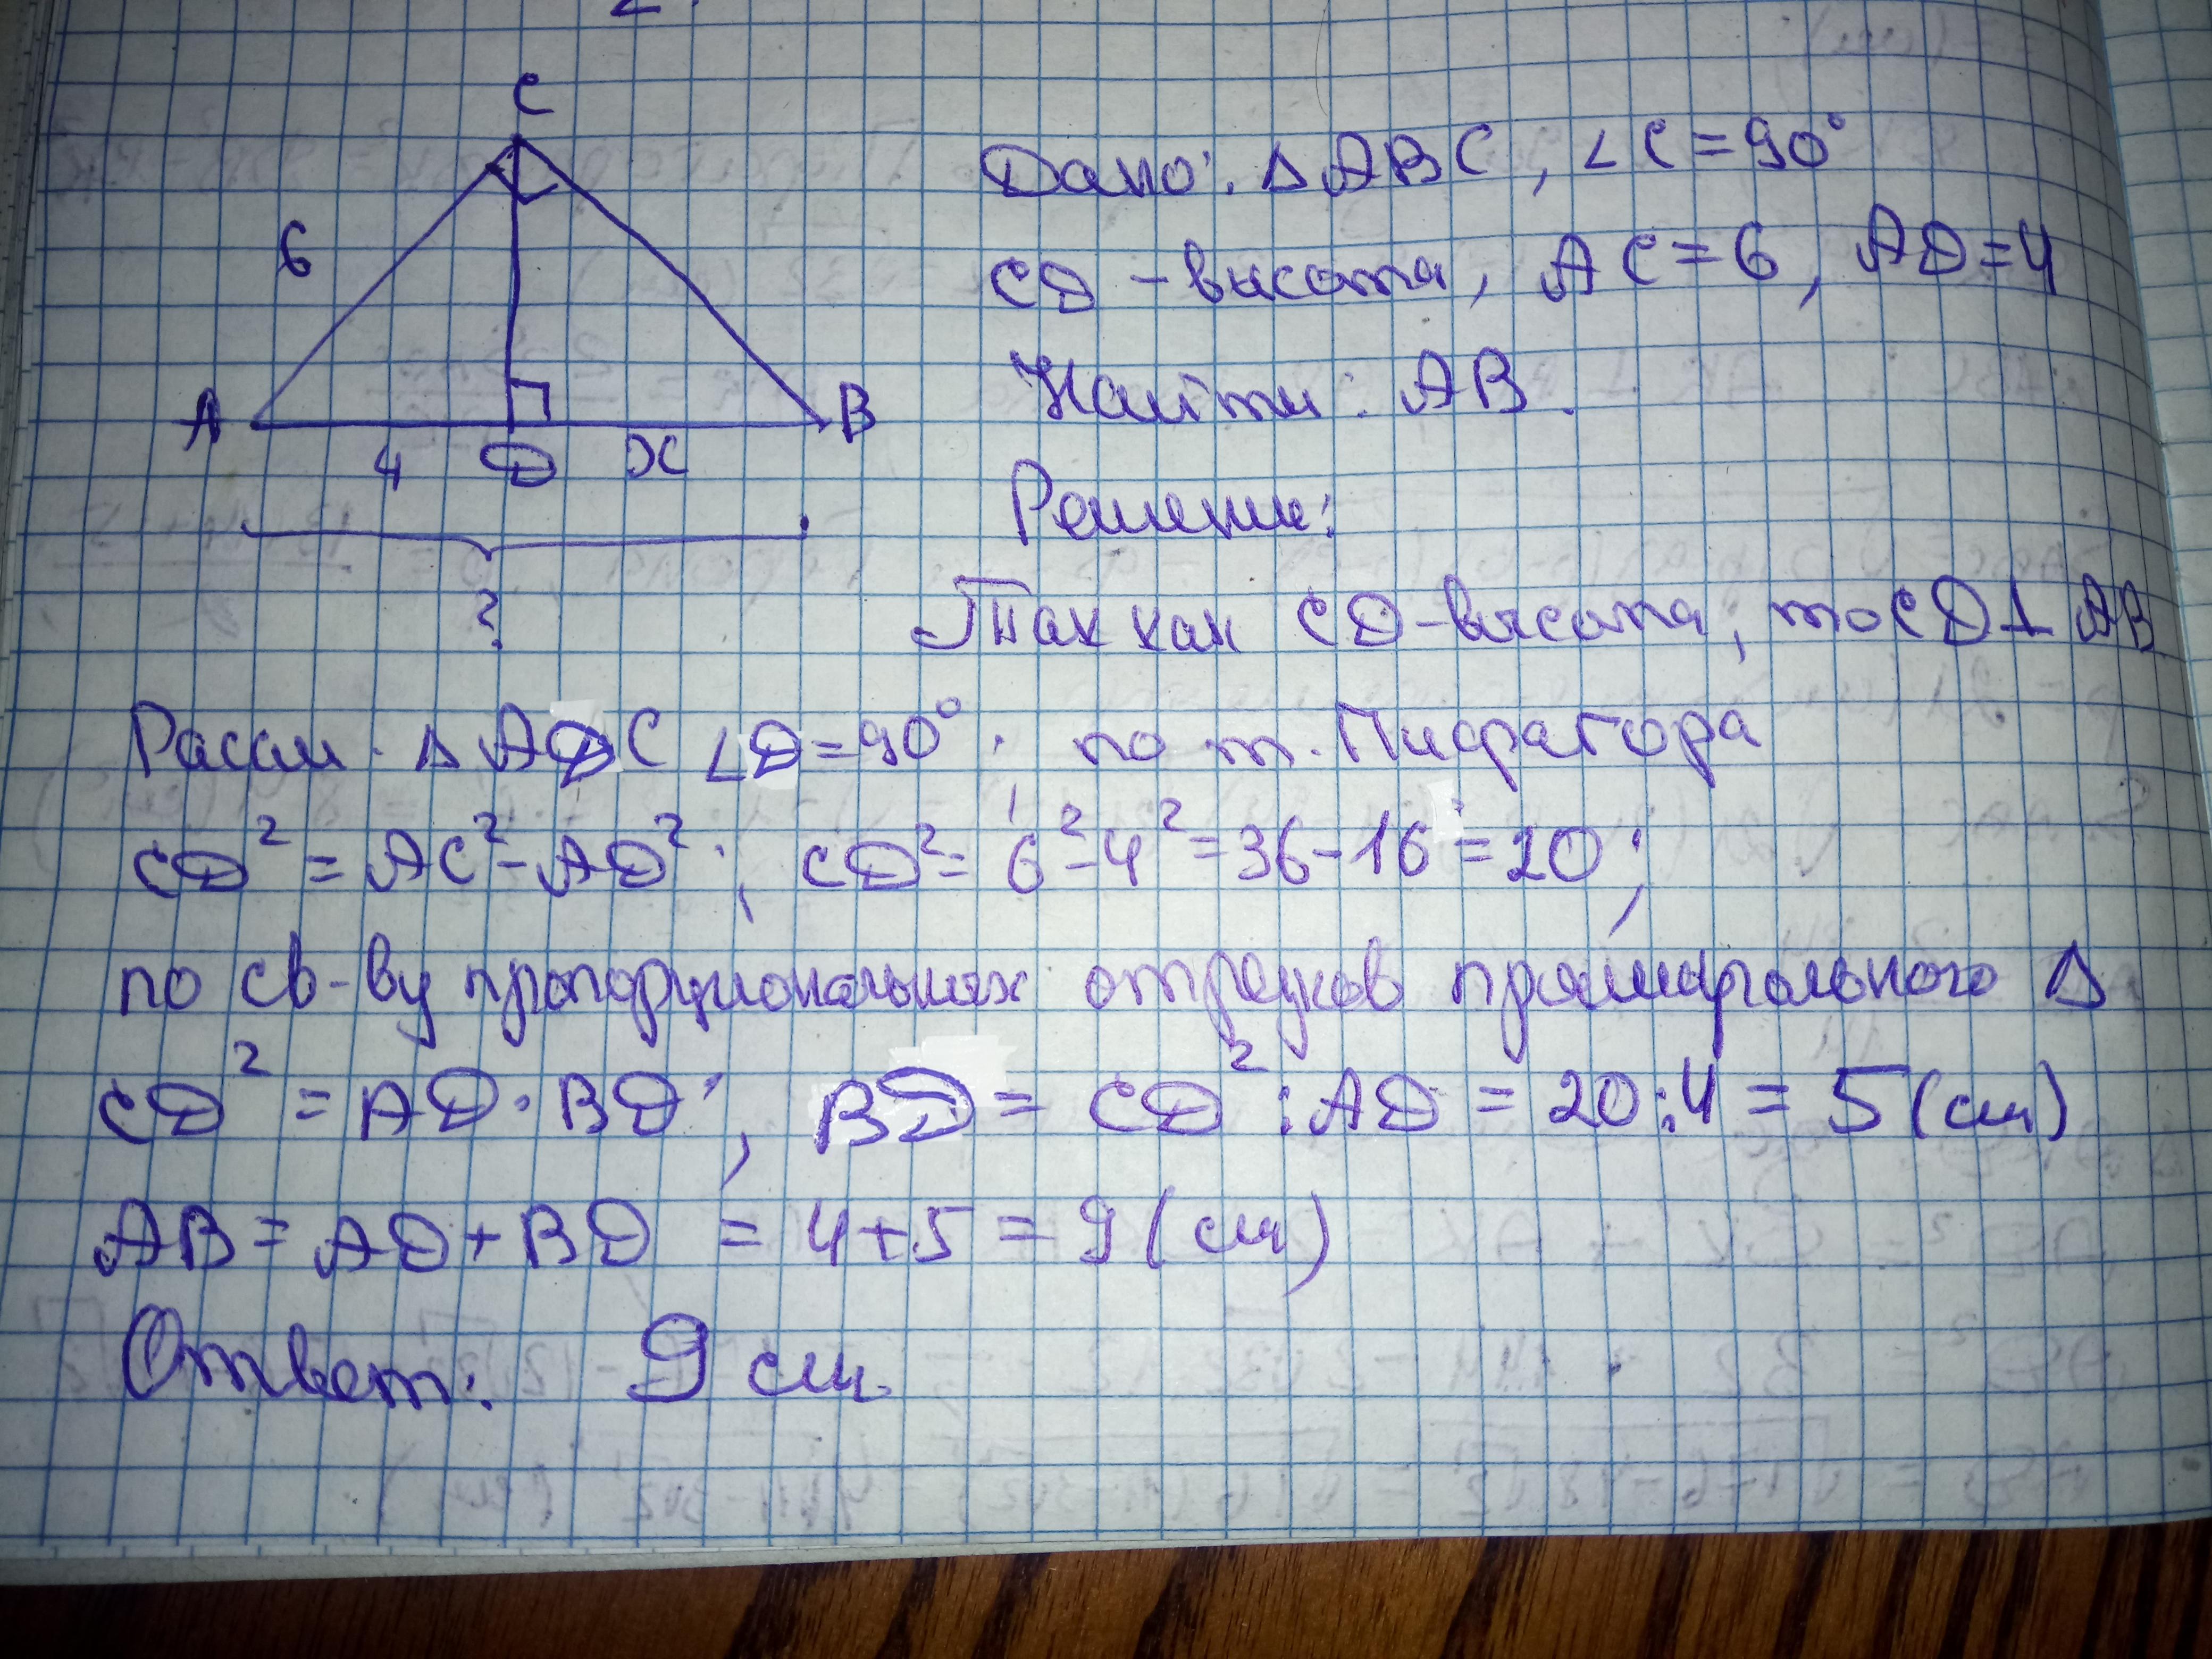 C
Дано: Δ ABC, ∠C = 90°
6
CD - высота, AC = 6, AD = 4
Найти: AB.
A 4 D x B
Решение:
?
Так как CD - высота, то CD ⊥ AB
Рассм. Δ ADC ∠D = 90°; по т. Пифагора
CD² = AC² - AD²; CD² = 6² - 4² = 36 - 16 = 20;
по св-ву пропорциональных отрезков прямоугольного Δ
CD² = AD · BD; BD = CD² : AD = 20 : 4 = 5 (см)
AB = AD + BD = 4 + 5 = 9 (см)
Ответ: 9 см.